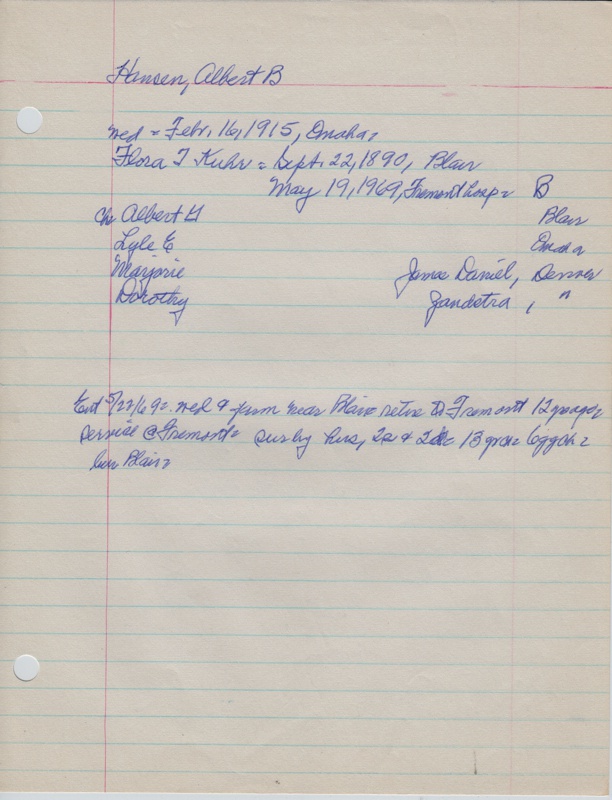 Hansen, Albert B
wed = Febr. 16, 1915, Omaha=
Flora T Kuhr = Sept. 22, 1890, Blair
May 19, 1969, Fremont hosp= B
ch= Albert H Blair
Lyle E Omaha
Marjorie James Daniel, Denver
Dorothy Zandstra, "
Ent 5/22/69= wed & farm near Blair= retire to Fremont 12 yr ago=
service @ Fremont= sur by hus, 2s & 2d= 13 grch= 6 ggch=
bur Blair=